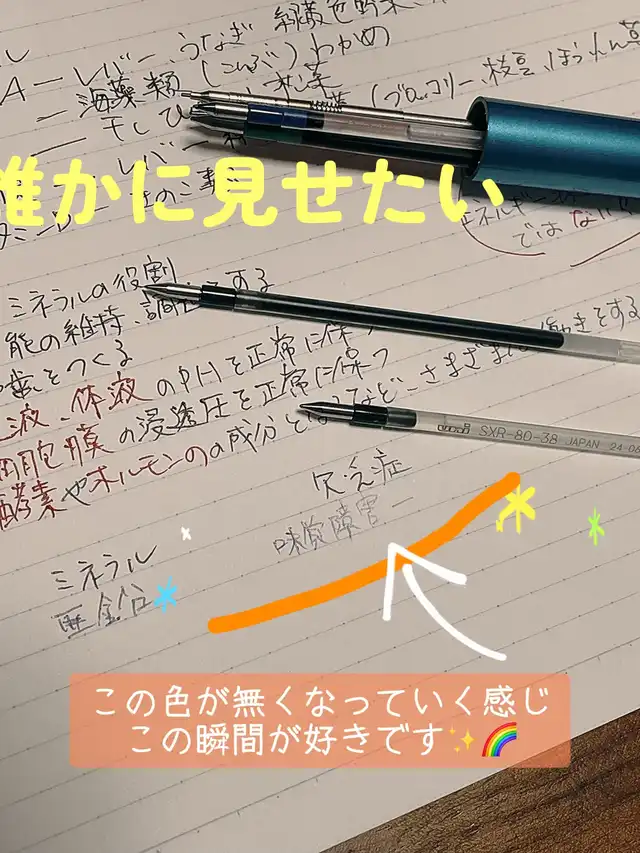 A－レバー、うなぎ 緑黄色野菜、
－海藻類（こんぶ）わかめ
（ブロッコリー、枝豆、ほうれん草
－干しひ
レバー
誰かに見せたい
エネルギー
ではない
ミネラルの役割
能の維持、調 する
歯をつくる
液、体液のPHを正常に保つ
細胞膜の浸透圧を正常に保つ
酵素やホルモンのの成分となるなど、さまざまな働きをする
uni SXR-80-38 JAPAN 24-06
欠乏症
味質障害－
ミネラル
亜鉛
この色が無くなっていく感じ
この瞬間が好きです✨🌈